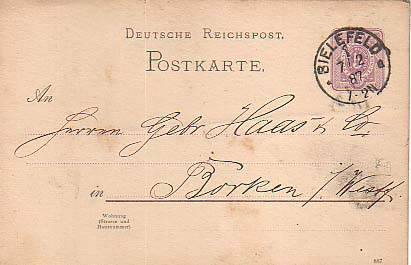 DEUTSCHE REICHSPOST.
POSTKARTE.
BIELEFELD
7/2
87
An
Herren Gebr Haas & Co.
in Borken i/Westf.
Wohnung
(Strasse und
Hausnummer)